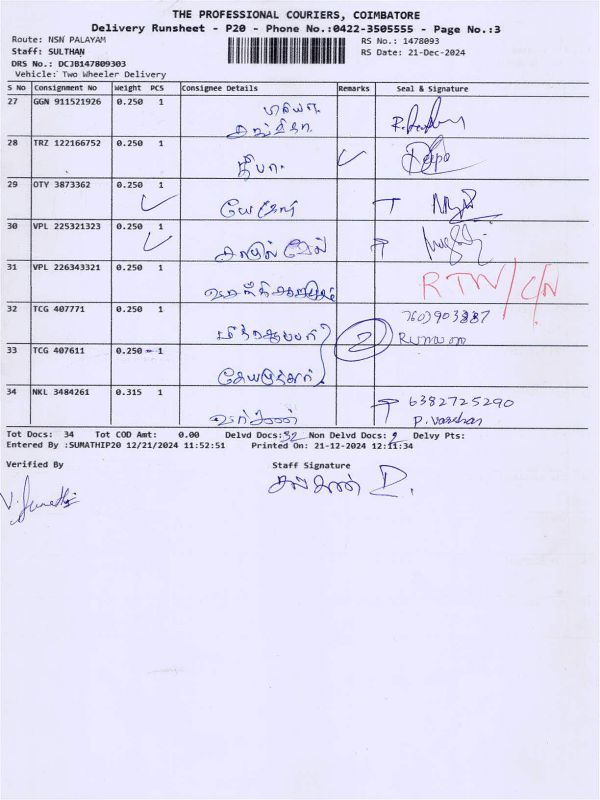 THE PROFESSIONAL COURIERS, COIMBATORE
Delivery Runsheet - P20 - Phone No.:0422-3505555 - Page No.:3
Route: NSN PALAYAM RS No.: 1478093
Staff: SULTHAN RS Date: 21-Dec-2024
DRS No.: DCJB147809303
Vehicle: Two Wheeler Delivery
S No Consignment No Weight PCS Consignee Details Remarks Seal & Signature
27 GGN 911521926 0.250 1
28 TRZ 122166752 0.250 1 தீபா. Deepa
29 OTY 3873362 0.250 1
30 VPL 225321323 0.250 1
31 VPL 226343321 0.250 1 RTN/CN
32 TCG 407771 0.250 1
2
33 TCG 407611 0.250 1
34 NKL 3484261 0.315 1 வர்சன் 6382725290
P. Varshan
Tot Docs: 34 Tot COD Amt: 0.00 Delvd Docs:32 Non Delvd Docs: 2 Delvy Pts:
Entered By :SUMATHIP20 12/21/2024 11:52:51 Printed On: 21-12-2024 12:11:34
Verified By Staff Signature
V. Sumathi